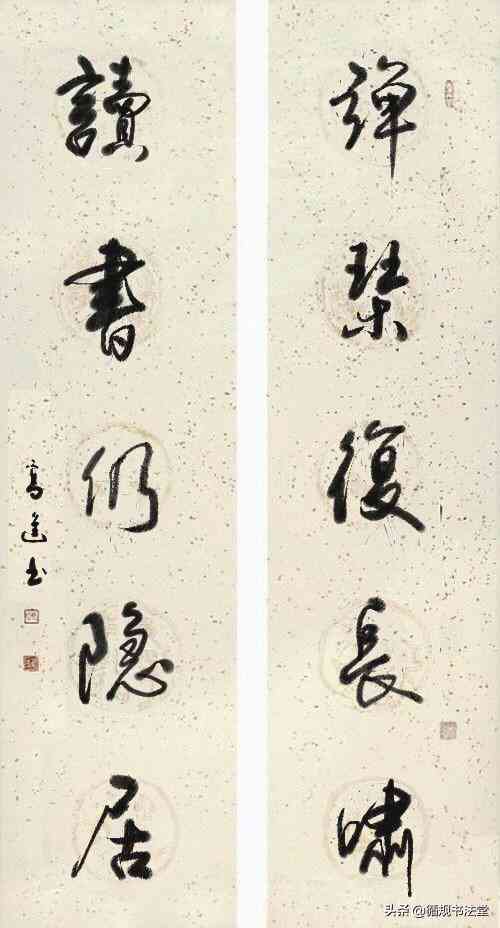 彈琴復長嘯
讀書仍隐居
书
头条 @循规书法堂